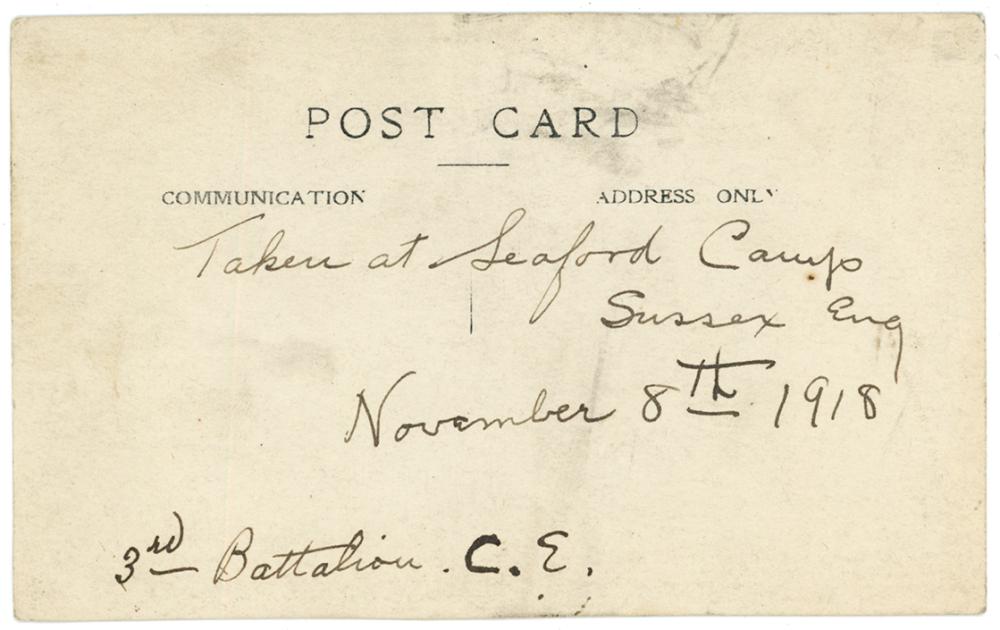 POST CARD
COMMUNICATION ADDRESS ONLY
Taken at Seaford Camp
Sussex Eng
November 8TH 1918
3rd Battalion. C. E.